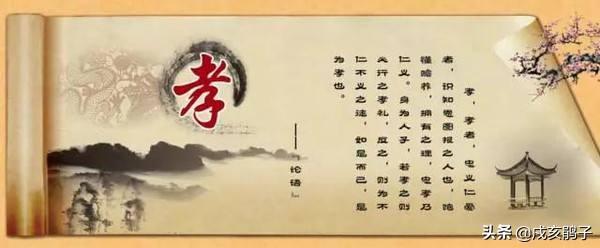 孝
孝，孝者，忠义仁爱
者，识知恩图报之人也，饱
懂赡养，拥有之理，忠孝乃
仁义。身为人子，若孝之则
必行之孝礼，度之，则为不
仁不义之迷，如是而已，是
为孝也。
——「论语」
头条 @戌亥鹊子